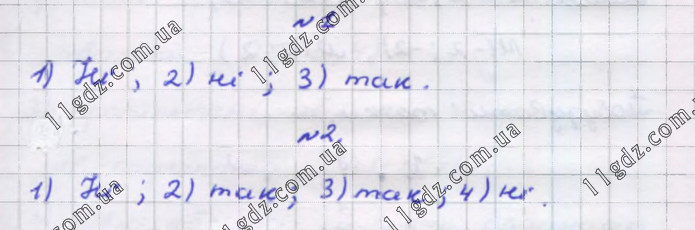 № 1
1) Ні, 2) ні; 3) так.
№ 2.
1) Ні; 2) так; 3) так; 4) ні.
11gdz.com.ua
11gdz.com.ua
11gdz.com.ua
11gdz.com.ua
11gdz.com.ua